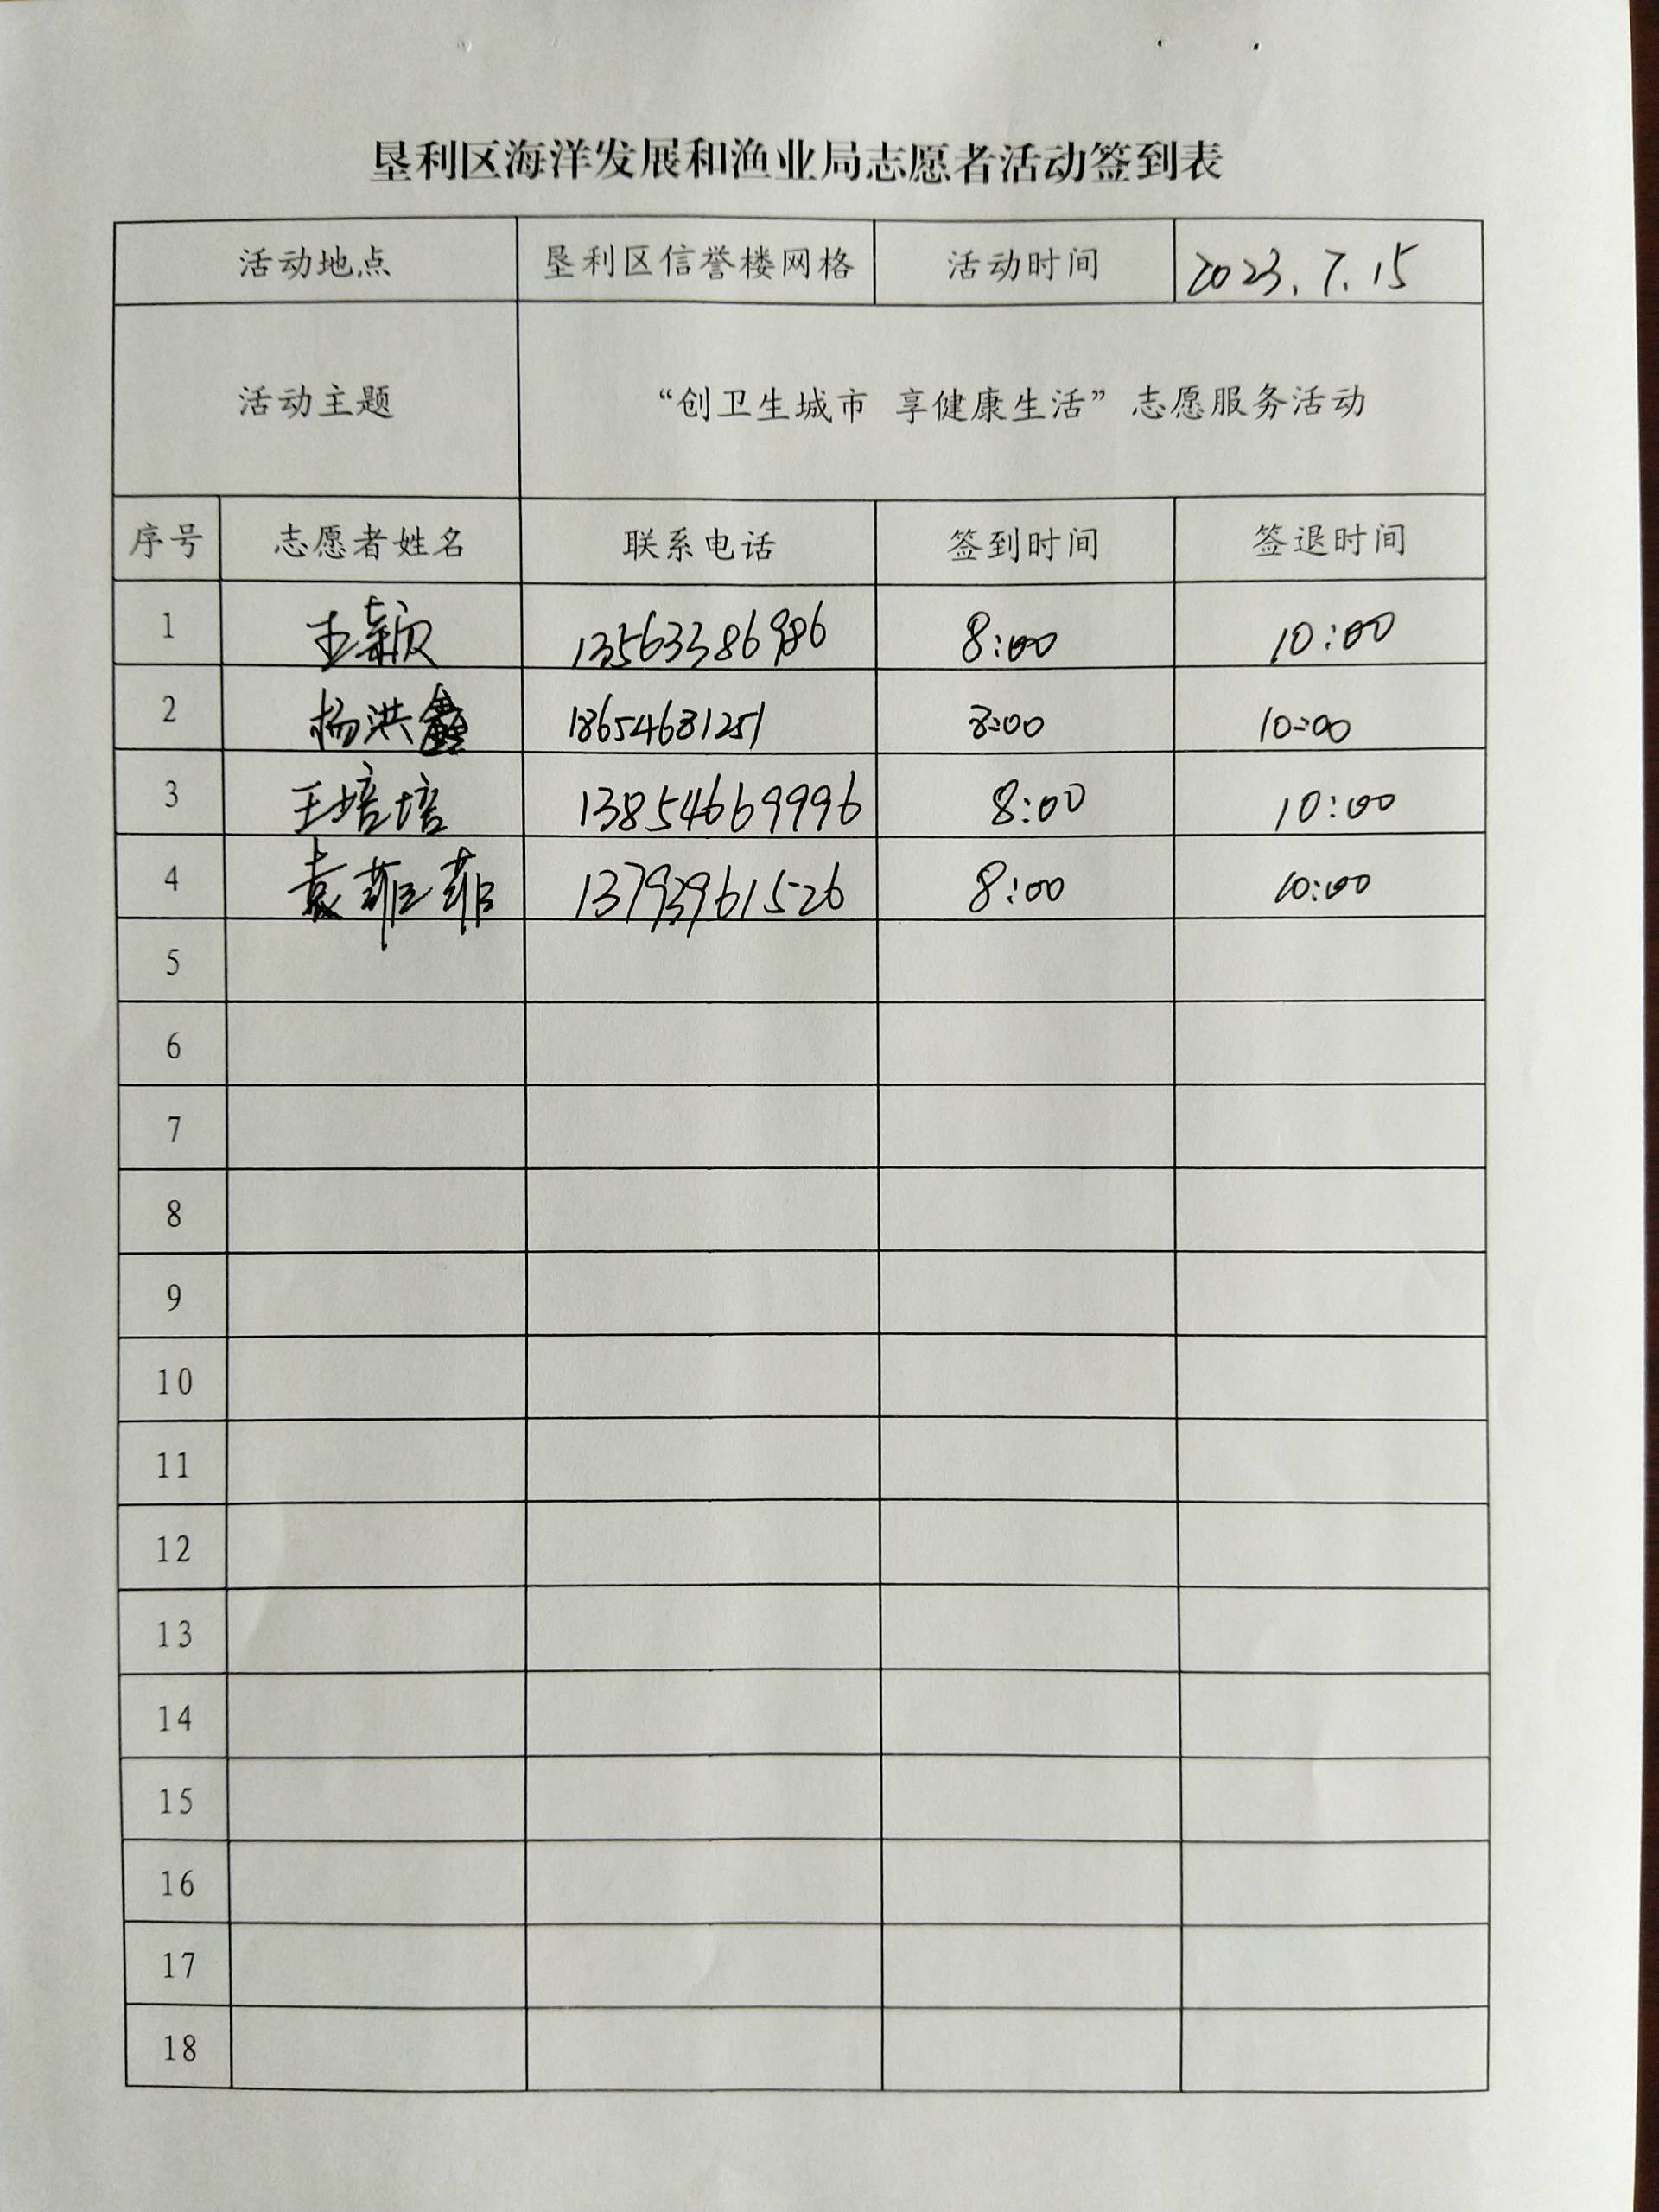 垦利区海洋发展和渔业局志愿者活动签到表
活动地点 垦利区信誉楼网格 活动时间 2023.7.15
活动主题 “创卫生城市 享健康生活”志愿服务活动
序号 志愿者姓名 联系电话 签到时间 签退时间
1 王颖 13563386986 8:00 10:00
2 杨洪鑫 18654681251 8:00 10:00
3 王培培 13854669996 8:00 10:00
4 袁菲菲 13793961526 8:00 10:00
5
6
7
8
9
10
11
12
13
14
15
16
17
18